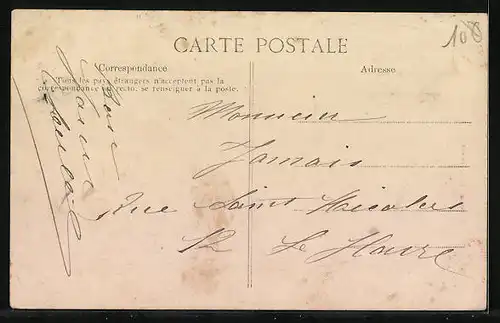 108
CARTE POSTALE
Correspondance
Adresse
Tous les pays étrangers n'acceptent pas la
correspondance au recto, se renseigner à la poste.
Monsieur
Jamais
Rue Saint Nicolas
Le Havre